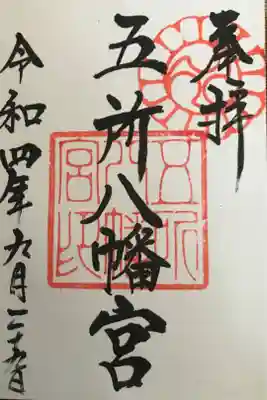 奉拝
五所八幡宮
令和四年九月二十五日
五所
八幡
宮印